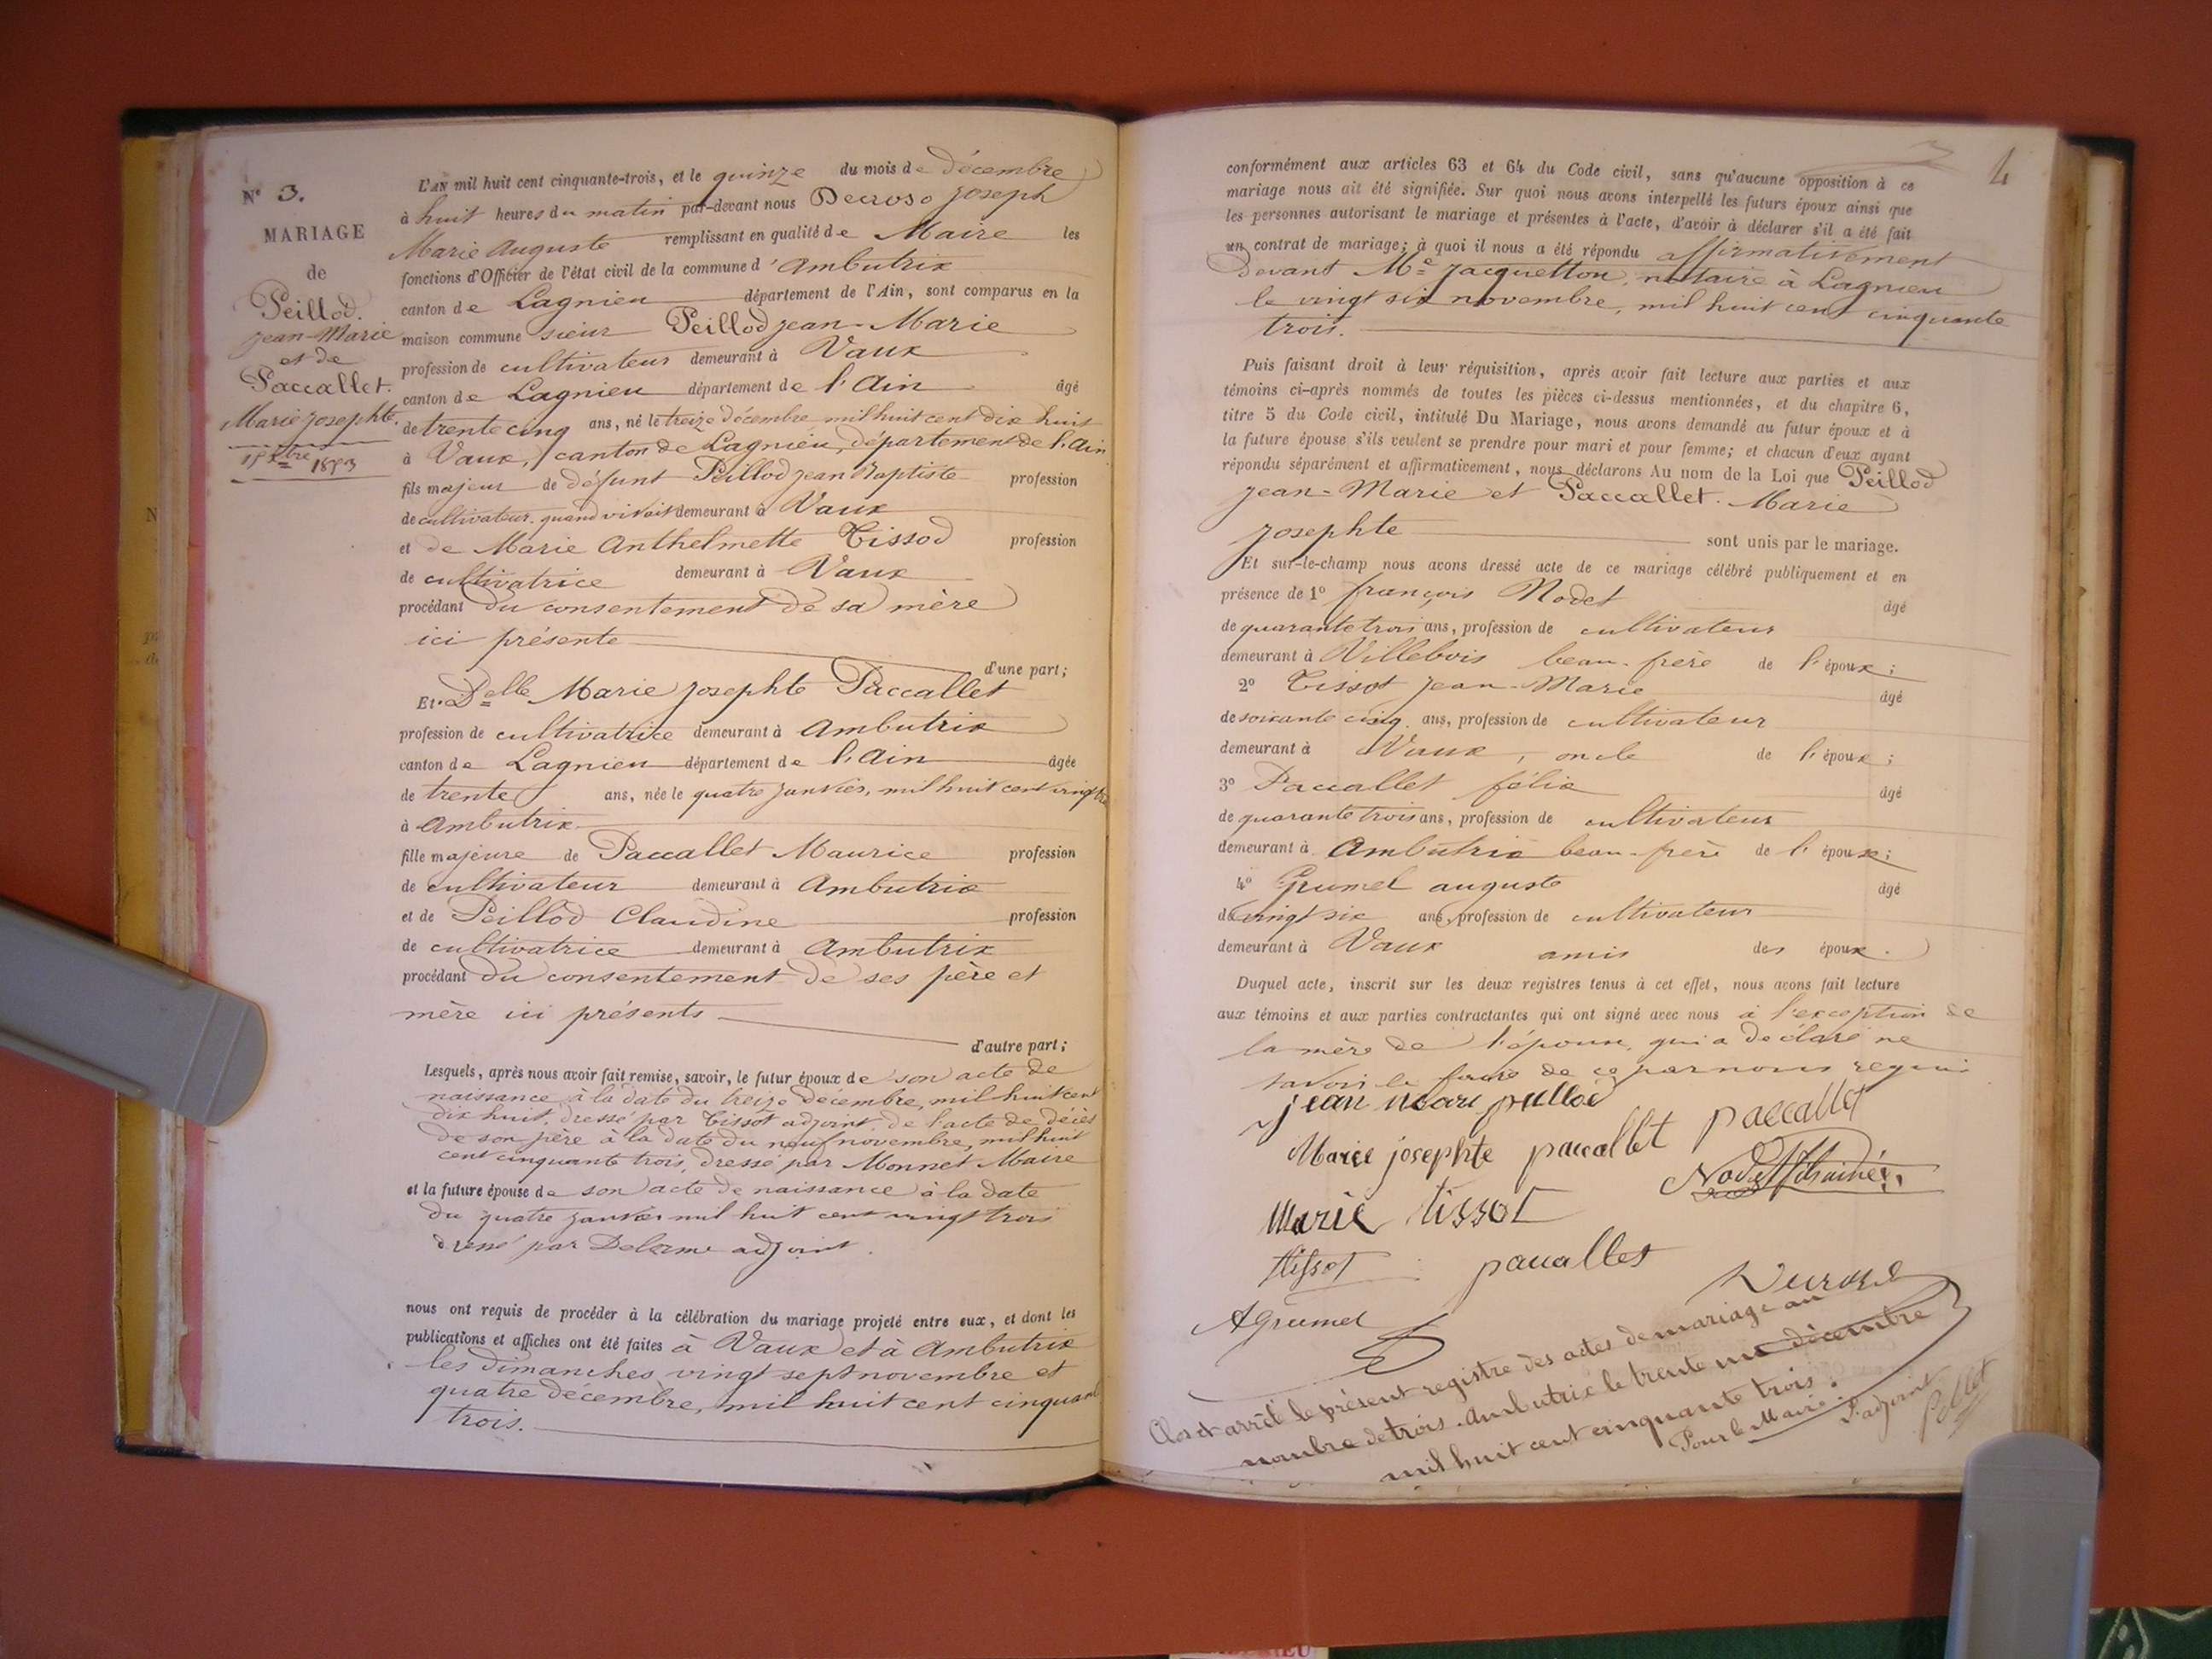 N° 3.
MARIAGE
de
Peillod.
Jean-Marie
et de
Paccallet.
Marie Josephte.
15 Xbre 1853
L'AN mil huit cent cinquante-trois, et le quinze du mois de décembre
à huit heures du matin par-devant nous Decroso Joseph
Marie Auguste remplissant en qualité de Maire les
fonctions d'Officier de l'état civil de la commune d'Ambutrix
canton de Lagnieu département de l'Ain, sont comparus en la
maison commune sieur Peillod Jean-Marie
profession de cultivateur demeurant à Vaux
canton de Lagnieu département de l'Ain âgé
de trente cinq ans, né le treize décembre mil huit cent dix huit
à Vaux, canton de Lagnieu, département de l'Ain
fils majeur de défunt Peillod Jean Baptiste profession
de cultivateur quand vivait demeurant à Vaux
et de Marie Anthelmette Tissod profession
de cultivatrice demeurant à Vaux
procédant du consentement de sa mère
ici présente
d'une part;
Et Delle Marie Josephte Paccallet
profession de cultivatrice demeurant à Ambutrix
canton de Lagnieu département de l'Ain âgée
de trente ans, née le quatre janvier, mil huit cent vingt
à Ambutrix
fille majeure de Paccallet Maurice profession
de cultivateur demeurant à Ambutrix
et de Peillod Claudine profession
de cultivatrice demeurant à Ambutrix
procédant du consentement de ses père et
mère ici présents
d'autre part;
Lesquels, après nous avoir fait remise, savoir, le futur époux de son acte de
naissance à la date du treize décembre, mil huit cent
dix huit, dressé par Tissot adjoint, de l'acte de décès
de son père à la date du neuf novembre, mil huit
cent cinquante trois, dressé par Monnet Maire
et la future épouse de son acte de naissance à la date
du quatre janvier mil huit cent vingt trois
dressé par Delorme adjoint.
nous ont requis de procéder à la célébration du mariage projeté entre eux, et dont les
publications et affiches ont été faites à Vaux et à Ambutrix
les dimanches vingt sept novembre et
quatre décembre, mil huit cent cinquant
trois.
4
conformément aux articles 63 et 64 du Code civil, sans qu'aucune opposition à ce
mariage nous ait été signifiée. Sur quoi nous avons interpellé les futurs époux ainsi que
les personnes autorisant le mariage et présentes à l'acte, d'avoir à déclarer s'il a été fait
un contrat de mariage; à quoi il nous a été répondu affirmativement
devant Me Jacquetton, notaire à Lagnieu
le vingt six novembre, mil huit cent cinquante
trois.
Puis faisant droit à leur réquisition, après avoir fait lecture aux parties et aux
témoins ci-après nommés de toutes les pièces ci-dessus mentionnées, et du chapitre 6,
titre 5 du Code civil, intitulé Du Mariage, nous avons demandé au futur époux et à
la future épouse s'ils veulent se prendre pour mari et pour femme; et chacun d'eux ayant
répondu séparément et affirmativement, nous déclarons Au nom de la Loi que Peillod
Jean-Marie et Paccallet. Marie
Josephte sont unis par le mariage.
Et sur-le-champ nous avons dressé acte de ce mariage célébré publiquement et en
présence de 1° françois Nodet âgé
de quarante trois ans, profession de cultivateur
demeurant à Villebois beau-frère de l'époux;
2° Tissot Jean-Marie âgé
de soixante cinq ans, profession de cultivateur
demeurant à Vaux, oncle de l'époux;
3° Paccallet félix âgé
de quarante trois ans, profession de cultivateur
demeurant à Ambutrix beau-frère de l'époux;
4° Grumel auguste âgé
de vingt six ans, profession de cultivateur
demeurant à Vaux amis des époux.
Duquel acte, inscrit sur les deux registres tenus à cet effet, nous avons fait lecture
aux témoins et aux parties contractantes qui ont signé avec nous à l'exception de
la mère de l'épouse, qui a déclaré ne
savoir le faire de ce par nous requis
jean marie peillod
paccallet
Marie josephte paccallet
Nodet
Marie tissot
tissot
paccallet
A grumel
Clos et arrêté le présent registre des actes de mariage au
nombre de trois. Ambutrix le trente un décembre
mil huit cent cinquante trois.
Pour le Maire l'adjoint